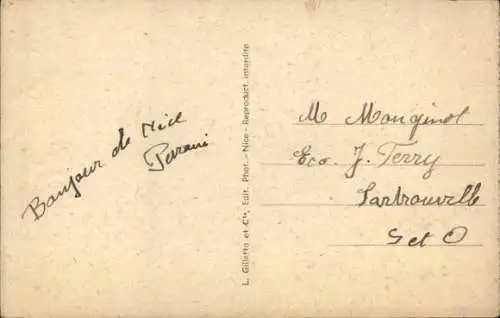 Bonjour de Nice
Perani
L. Gilletta et Cie, Edit. Phot. - Nice - Reproduct. interdite
M Mouginot
Eco. J. Ferry
Sartrouville
S et O